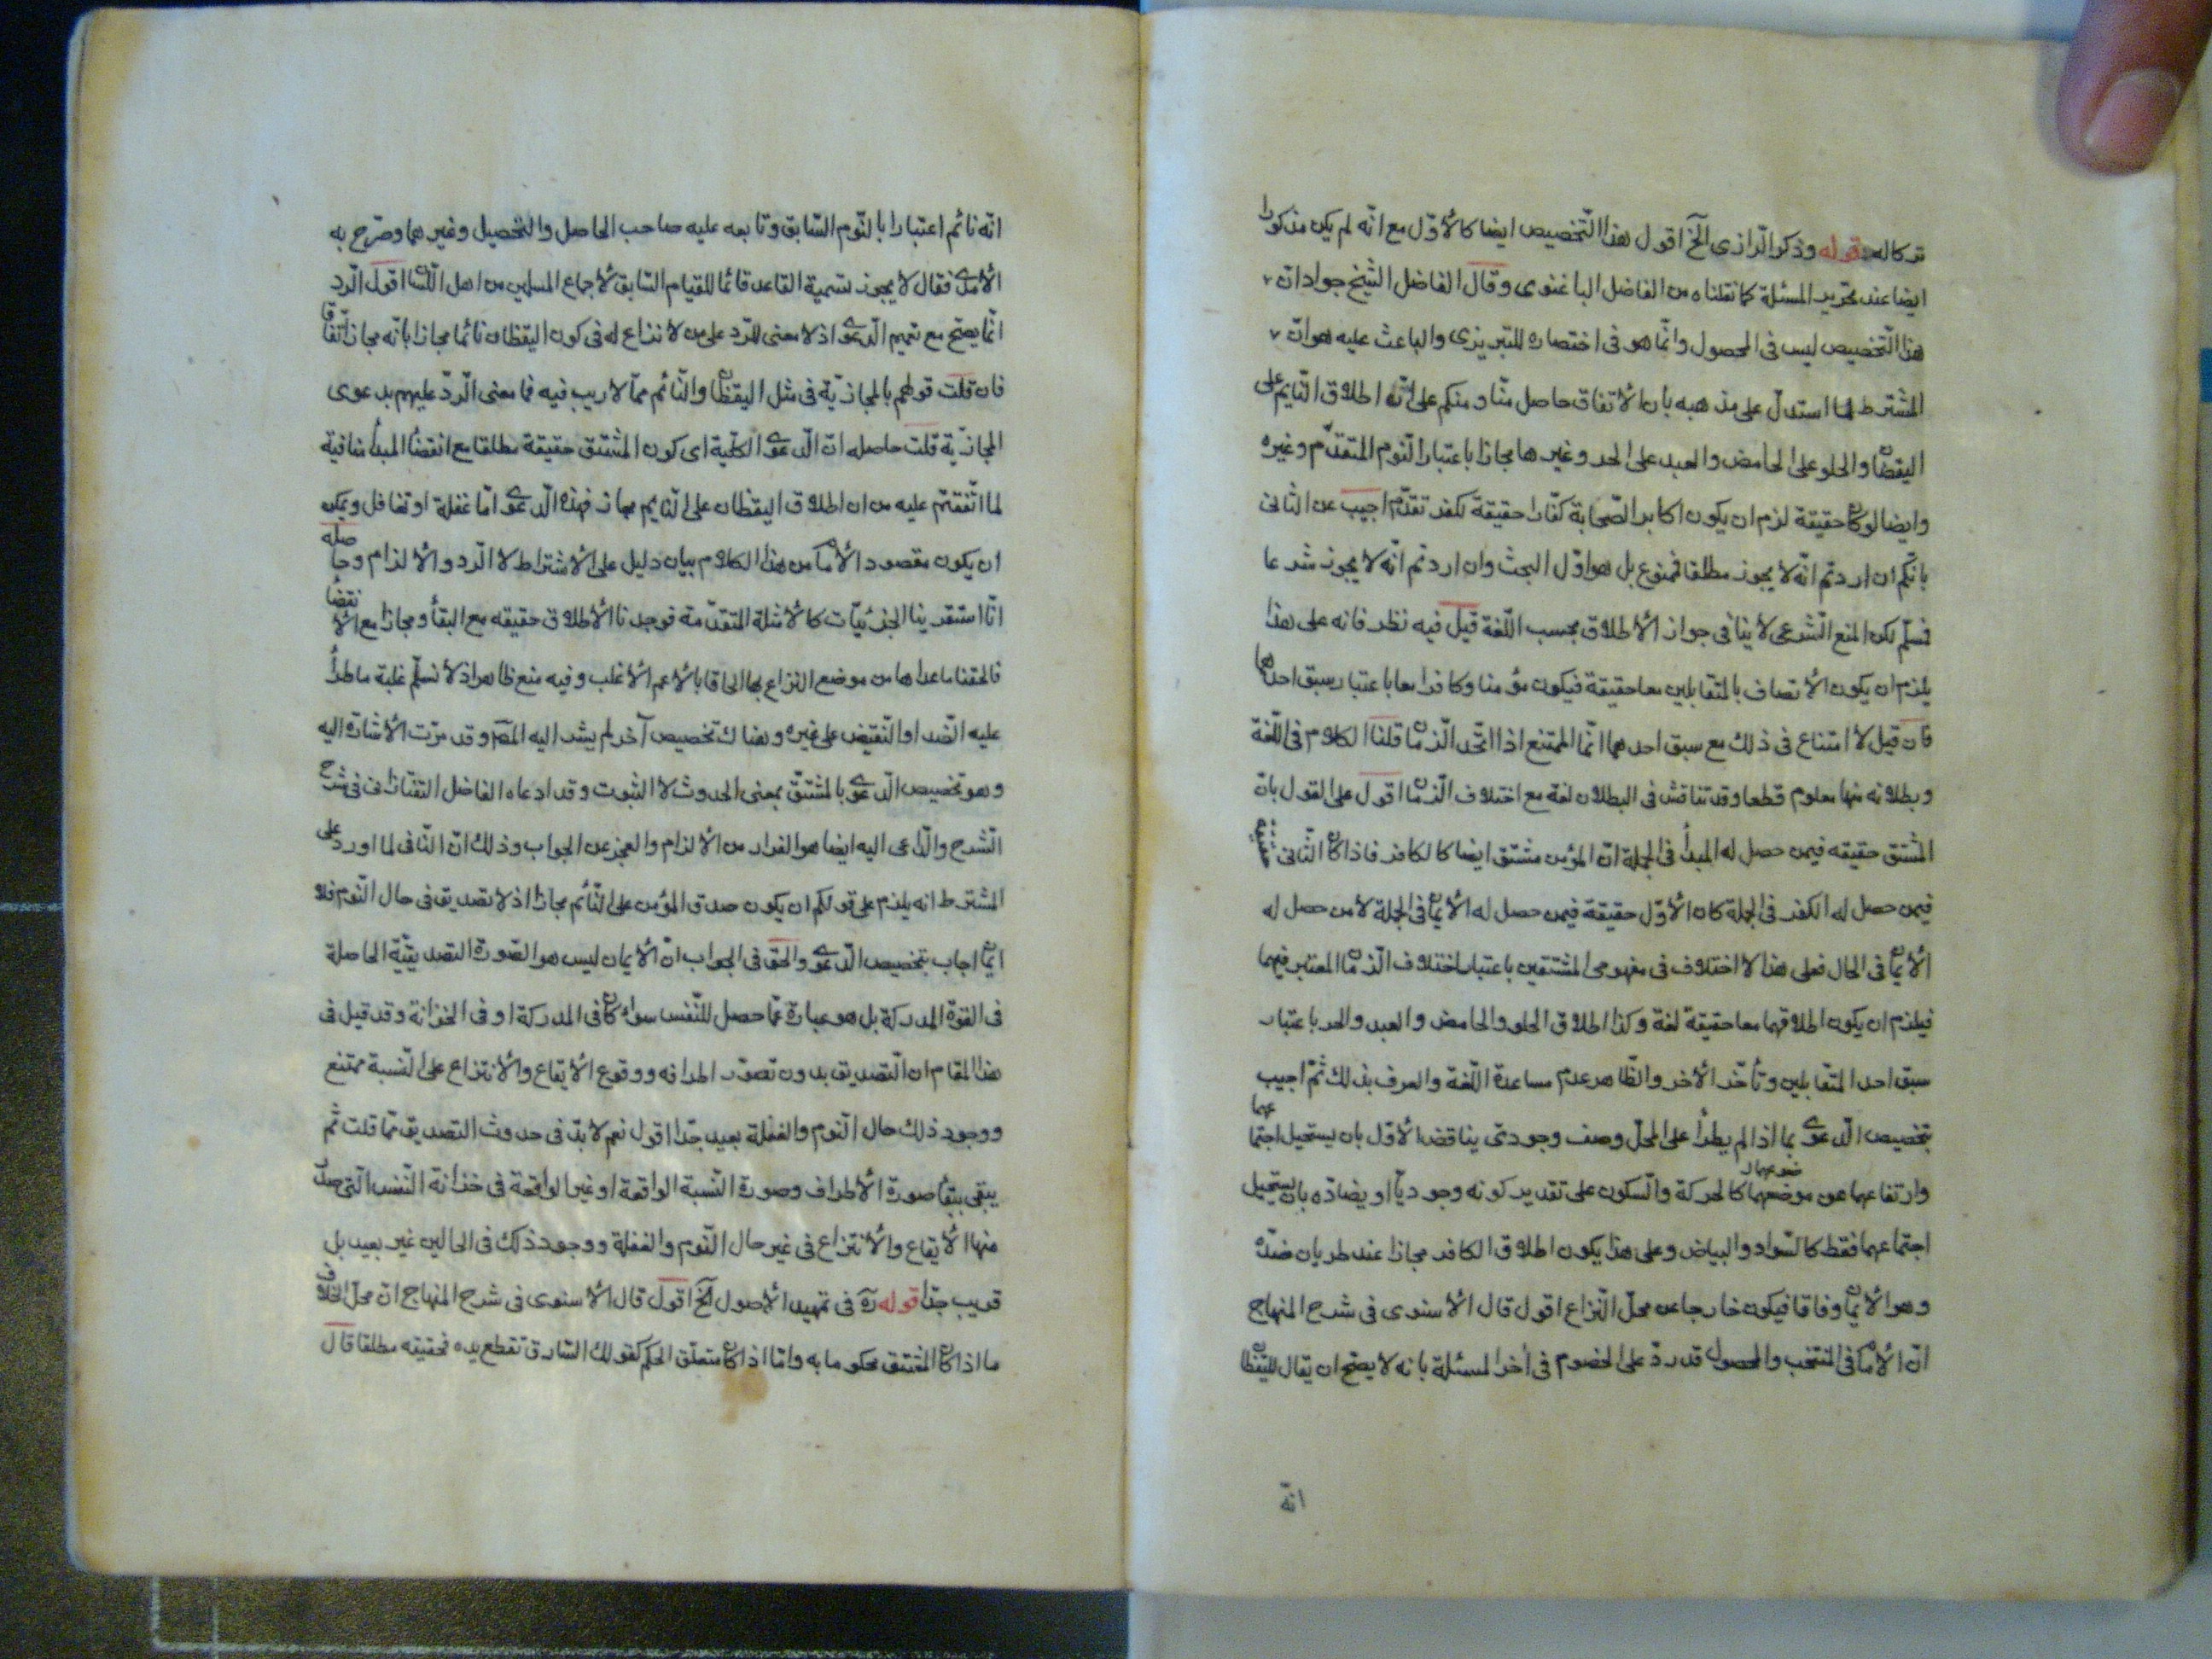 تركاله قوله وذكر الرازى آلخ اقول هذا التّخصيص ايضا كالأوّل مع انّه لم يكن مذكورا
ايضا عند تحرير المسئلة كما نقلناه من الفاضل الباغنوى وقال الفاضل الشّيخ جواد انّ
هذا التّخصيص ليس فى المحصول وانّما هو فى اختصاره للتبريزى والباعث عليه هو انّ
المشترط لما استدلّ على مذهبه بان الأتفاق حاصل منّا ومنكم على انّه اطلاق النّايم على
اليقضان والحلو على الحامض والعبد على الحر وغيرها مجازا باعتبار النّوم المتقدّم وغيره
وايضا لو كان حقيقة لزم ان يكون اكابر الصّحابة كفّارا حقيقة لكفر تقدّم اجيب عن الثانى
بانّكم ان اردتم انّه لا يجوز مطلقا فممنوع بل هو اوّل البحث وان اردتم انّه لا يجوز شرعا
فمسلّم لكن المنع الشّرعى لا ينافى جواز الأطلاق بحسب اللّغة قيل فيه نظر فانه على هذا
يلزم ان يكون الأتصاف بالمتقابلين معا حقيقة فيكون مؤمنا وكافرا معا باعتبار سبق احدها
فان قيل لا امتناع فى ذلك مع سبق احدهما انّما الممتنع اذا اتّحد الّزمان قلنا الكلام فى اللّغة
وبطلانه منها معلوم قطعا وقد تناقش فى البطلان لغة مع اختلاف الزمان اقول على القول بانّ
المشتق حقيقه فيمن حصل له المبدأ فى الجملة انّ المؤمن مشتق ايضا كالكافر فاذا كان الثّانى حقيقة
فيمن حصل له الكفر فى الجملة كان الأوّل حقيقة فيمن حصل له الأيمان فى الجملة لا من حصل له
الأيمان فى الحال فعلى هذا لا اختلاف فى مفهومى المشتقين باعتبار اختلاف الّزمان المعتبر فيهما
فيلزم ان يكون اطلاقهما معا حقيقة لغة وكذا اطلاق الحلو والحامض والعبد والحر باعتبار
سبق احد المتقابلين وتأخّر الأخر والظّاهر عدم مساعدة اللّغة والعرف بذلك ثمّ اجيب
بتخصيص الدّعوى بما اذا لم يطرأ على المحلّ وصف وجودى يناقض الأوّل بان يستحيل اجتماعهما
وارتفاعهما عن موضعهما كالحركة والسّكون على تقدير كونه وجوديّا او يضادّه بان يستحيل
اجتماعهما فقط كالسّواد والبياض وعلى هذا يكون اطلاق الكافر مجازا عند طريان ضدّه
وهو الأيمان وفاقا فيكون خارجا عن محلّ النّزاع اقول قال الأسنوى فى شرح المنهاج
انّ الأمام فى المنتخب والمحصول قد ردّ على الخصوم فى اخر المسئلة بانه لا يصحّ ان يقال لليقظان
انّه
انّه نائم اعتبارا بالنّوم السّابق وتابعه عليه صاحب الحاصل والتحصيل وغيرهما وصرّح به
الأمدى فقال لا يجوز تسمية القاعد قائما للقيام السّابق لأجماع المسلمين من اهل اللّسان اقول الّرد
انّما يصحّ مع تعميم الدّعوى اذ لا معنى للرّد على من لا نزاع له فى كون اليقظان نائما مجازا بانّه مجاز اتّفاقا
فان قلت قولهم بالمجازيّة فى مثل اليقظان والنّائم ممّا لا ريب فيه فما معنى الّردّ عليهم بدعوى
المجازيّة قلت حاصله انّ الدّعوى الكلّية اى كون المشتق حقيقة مطلقا مع انقضاء المبدأ منافية
لما اتّفقتم عليه من ان اطلاق اليقظان على النّايم مجاز فهذه الدّعوى امّا غفلة او تغافل ويمكن
ان يكون مقصود الأمام من هذا الكلام بيان دليل على الأشتراط لا الّرد والألزام وحاصله
انّا استقرينا الجزئيّات كالأمثلة المتقدّمة فوجدنا الأطلاق حقيقه مع البقاء ومجازا مع الأنقضاء
فالحقنا ماعداها من موضع النزاع بها الحاقا بالأعم الأغلب وفيه منع ظاهر اذ لا نسلّم غلبة ما طرأ
عليه الضّد او النّقيض على غيره وهناك تخصيص آخر لم يشر اليه المصّ وقد مرّت الأشارة اليه
وهو تخصيص الدّعوى بالمشتقّ بمعنى الحدوث لا الثبوت وقد ادعاه الفاضل التفتازانى فى شرح
الشّرح والدّاعى اليه ايضا هو الفرار من الألزام والعجز عن الجواب وذلك انّ النّافى لما اورد على
المشترط انه يلزم على قولكم ان يكون صدق المؤمن على النّائم مجازا اذ لا تصديق فى حال النّوم فلا
ايمان اجاب بتخصيص الدّعوى والحق فى الجواب انّ الأيمان ليس هو الصّورة التصديقيّة الحاصلة
فى القوّة المدركة بل هو عبارة عمّا حصل للنّفس سواء كان فى المدركة او فى الخزانة وقد قيل فى
هذا المقام ان التصديق بدون تصوّر اطرافه ووقوع الأيقاع والأنتزاع على النّسبة ممتنع
ووجود ذلك حال النّوم والغفلة بعيد جدّا اقول نعم لابدّ فى حدوث التصديق ممّا قلت ثم
يبقى ببقاء صورة الأطراف وصورة النّسبة الواقعة او غير الواقعة فى خزانة النّفس الّتى صدر
منها الأيقاع والأنتزاع فى غير حال النّوم والغفلة ووجود ذلك فى الحالين غير بعيد بل
قريب جدّا قوله رَه فى تمهيد الأصول آلخ اقول قال الأسنوى فى شرح المنهاج انّ محلّ الخلاف
ما اذا كان المشتق محكوما به وامّا اذا كان متعلّق الحكم كقولك السّارق تقطع يده فحقيقه مطلقا قال